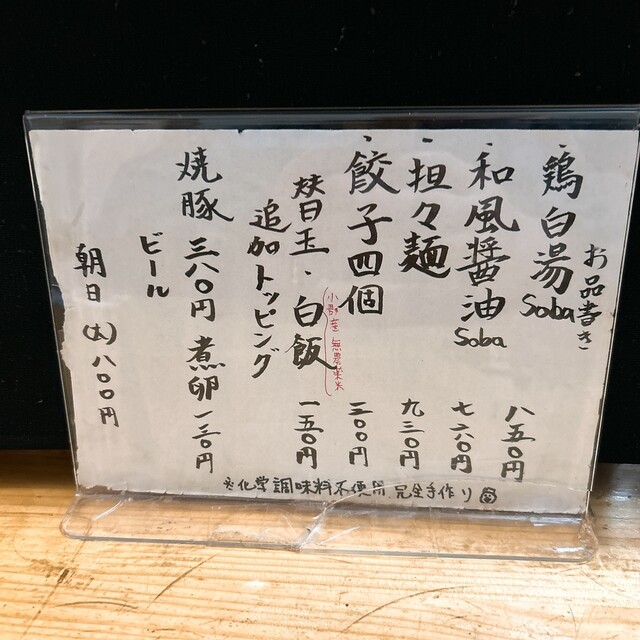 お品書き
・鶏白湯Soba 八五〇円
・和風醤油Soba 七六〇円
・担々麺 九三〇円
・餃子四個 三〇〇円
替玉・白飯 一五〇円
小郡産 無農薬米
追加トッピング
焼豚 三八〇円 煮卵 一三〇円
ビール
朝日(大)八〇〇円
※化学調味料不使用 完全手作り